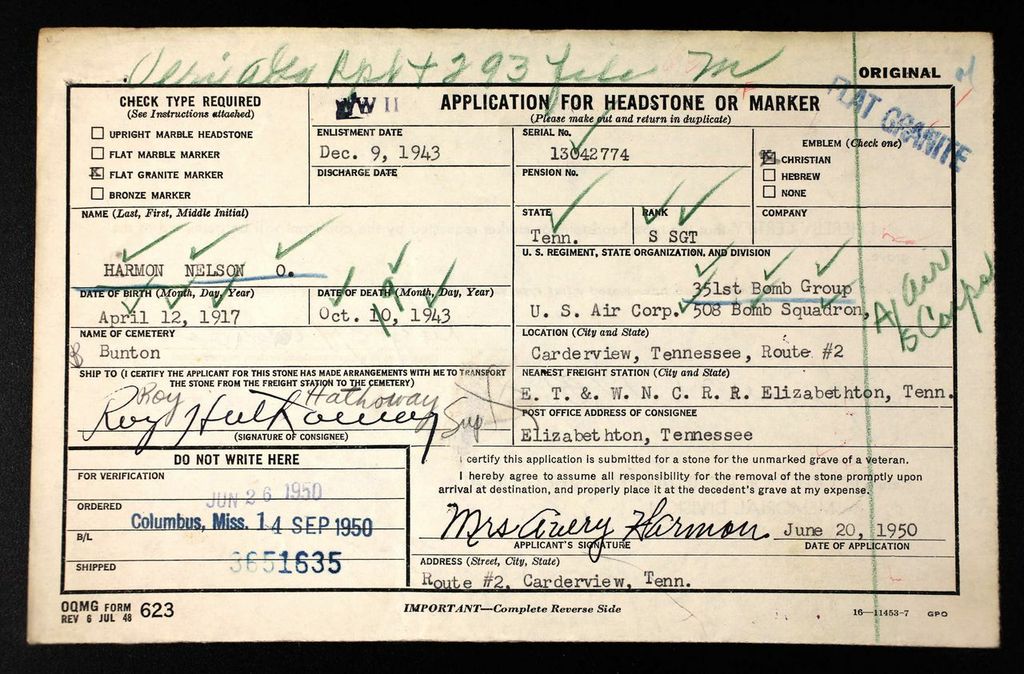 293 file
ORIGINAL
FLAT GRANITE
CHECK TYPE REQUIRED
(See Instructions attached)
UPRIGHT MARBLE HEADSTONE
FLAT MARBLE MARKER
X FLAT GRANITE MARKER
BRONZE MARKER
WW II
APPLICATION FOR HEADSTONE OR MARKER
(Please make out and return in duplicate)
ENLISTMENT DATE
Dec. 9, 1943
DISCHARGE DATE
SERIAL No.
13042774
PENSION No.
EMBLEM (Check one)
X CHRISTIAN
HEBREW
NONE
NAME (Last, First, Middle Initial)
HARMON NELSON O.
STATE
Tenn.
RANK
S SGT
COMPANY
U. S. REGIMENT, STATE ORGANIZATION, AND DIVISION
351st Bomb Group
U. S. Air Corp. 508 Bomb Squadron,
A/ Air
Corps
DATE OF BIRTH (Month, Day, Year)
April 12, 1917
DATE OF DEATH (Month, Day, Year)
Oct. 10, 1943
NAME OF CEMETERY
Bunton
LOCATION (City and State)
Carderview, Tennessee, Route #2
SHIP TO (I CERTIFY THE APPLICANT FOR THIS STONE HAS MADE ARRANGEMENTS WITH ME TO TRANSPORT
THE STONE FROM THE FREIGHT STATION TO THE CEMETERY)
Roy Hathoway
Roy Hathoway Sup
(SIGNATURE OF CONSIGNEE)
NEAREST FREIGHT STATION (City and State)
E. T. &. W. N. C. R. R. Elizabethton, Tenn.
POST OFFICE ADDRESS OF CONSIGNEE
Elizabethton, Tennessee
DO NOT WRITE HERE
FOR VERIFICATION
JUN 26 1950
ORDERED
Columbus, Miss. 14 SEP 1950
B/L
3651635
SHIPPED
I certify this application is submitted for a stone for the unmarked grave of a veteran.
I hereby agree to assume all responsibility for the removal of the stone promptly upon
arrival at destination, and properly place it at the decedent's grave at my expense.
Mrs Avery Harmon June 20, 1950
APPLICANT'S SIGNATURE DATE OF APPLICATION
ADDRESS (Street, City, State)
Route #2, Carderview, Tenn.
OQMG FORM
REV 6 JUL 48 623
IMPORTANT—Complete Reverse Side
16—11453-7 GPO